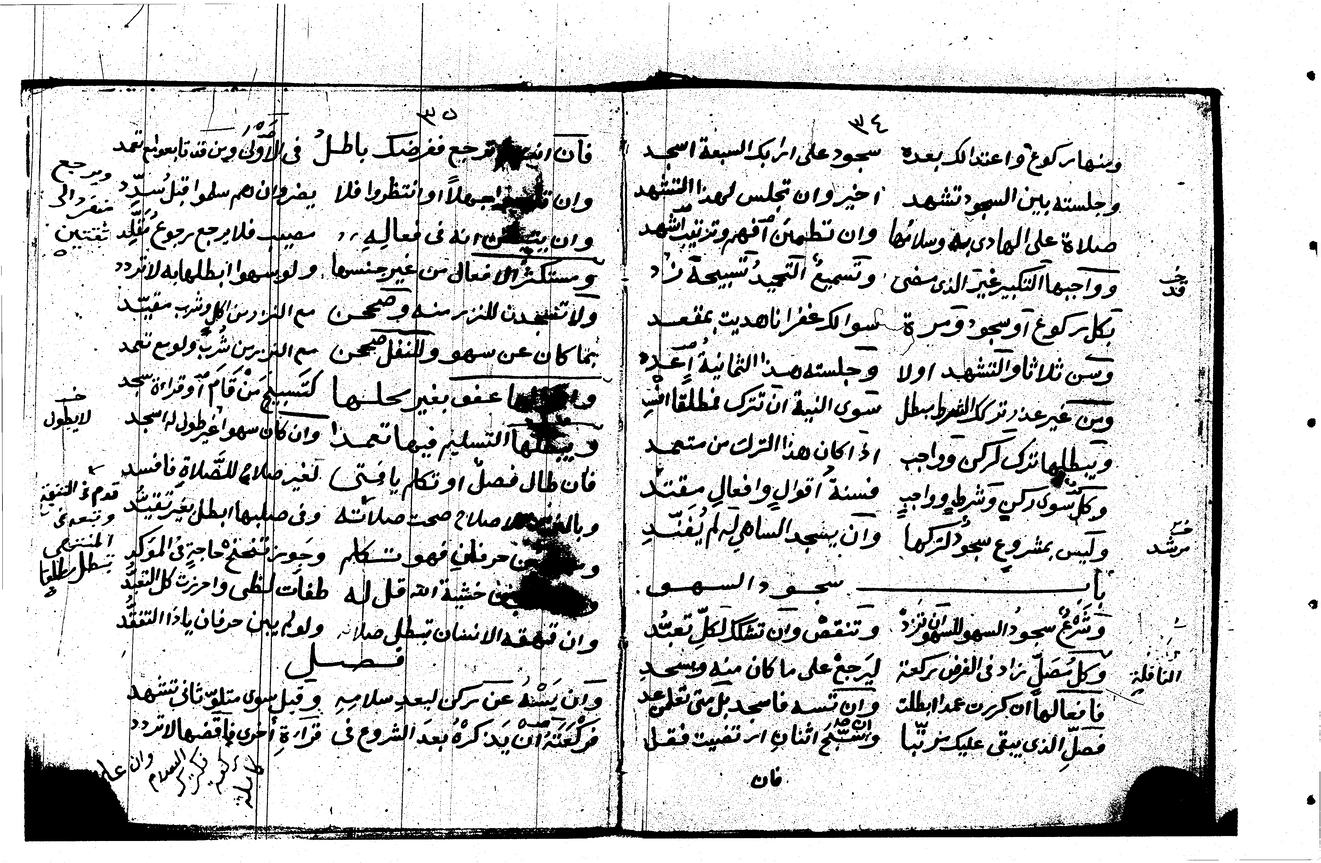 ٣٤
ومنها ركوع واعتدالك بعده سجود على اربك السبعة اسجد
وجلسته بين السجود تشهد اخير وان تجلس لهذا التشهد
صلاة على الهادي به وسلامها وان تطمئن افهم وترتيب اشهد
وواجبها التكبير غير الذي مضى وتسميع التحميد تسبيحة زد
بكل ركوع او سجود ومرة سوالك غفرانا هديت بمقعد
وسن ثلاثا والتشهد اولا وجلسته هذا الثمانية اعدد
ومن غير عذر ترك الشرط يبطل سوى النية ان تترك فمطلقا افسد
ويبطلها ترك لركن وواجب اذا كان هذا الترك من متعمد
وكل سوى ركن وشرط وواجب فسنة اقوال وافعال مقتد
وليس بمشروع سجود لتركها وان يسجد الساهي له لم يفند
باب سجود السهو
وشرع سجود السهو للسهو ان تزد وتنقص وان تشكك لكل تعبد
وكل مصل زاد في الفرض ركعة ليرجع على ما كان منه ويسجد
فافعالها ان كررت عمدا ابطلت وان تنسه فاسجد بل متى تعلمن عد
فصل الذي يبقى عليك مرتبا وان سبح اثنان ارتضيت فقل
فان
قد
مرشد
النافلة
٣٥
فان انت ترجع ففرضك باطل في الاولى ومن قد تابعوا بتعمد
وان جهلا او انتظروا فلا يضر وان هم سلموا قبل سدد
وان انه في فعاله مصيب فلا يرجع رجوع مقلد
ومستكثر الافعال من غير جنسها ولو سهوا ابطلها به لا تردد
ولا تسجدن للنزر منه وصححن مع النزر من اكل وشرب مقيد
بما كان عن سهو وللنفل صححن مع النزر من شرب ولو مع تعمد
بغير محلها كتسبيح من قام او قراءة سجد
ويبطلها التسليم فيها تعمدا وان كان سهوا غير طول له اسجد
فان طال فصل او تكلم يا فتى لغير صلاح للصلاة فافسد
لاصلاح صحت صلاته وفي صلبها ابطل بغير تقيد
حرفان فهو تكلم وجوز تنحنح حاجة في المؤكد
من خشية الله قل له طفأت لظى واحرزت كل التعبد
وان قهقه الانسان تبطل صلاته ولو لم يبن حرفان ياذا التفقد
فصل
وان ينسه عن ركن لبعد سلامه وقبل سوى متلو ثاني تشهد
فركعته ان يذكره بعد الشروع في قراءة اخرى فاقضها لا تردد
ويرجع
منفرد الى
ثقتين
لا يطول
قدم في التنقيح
وتبعه في
المنتهى
تبطل مطلقا
وان
السلام
ركعة
كاملة